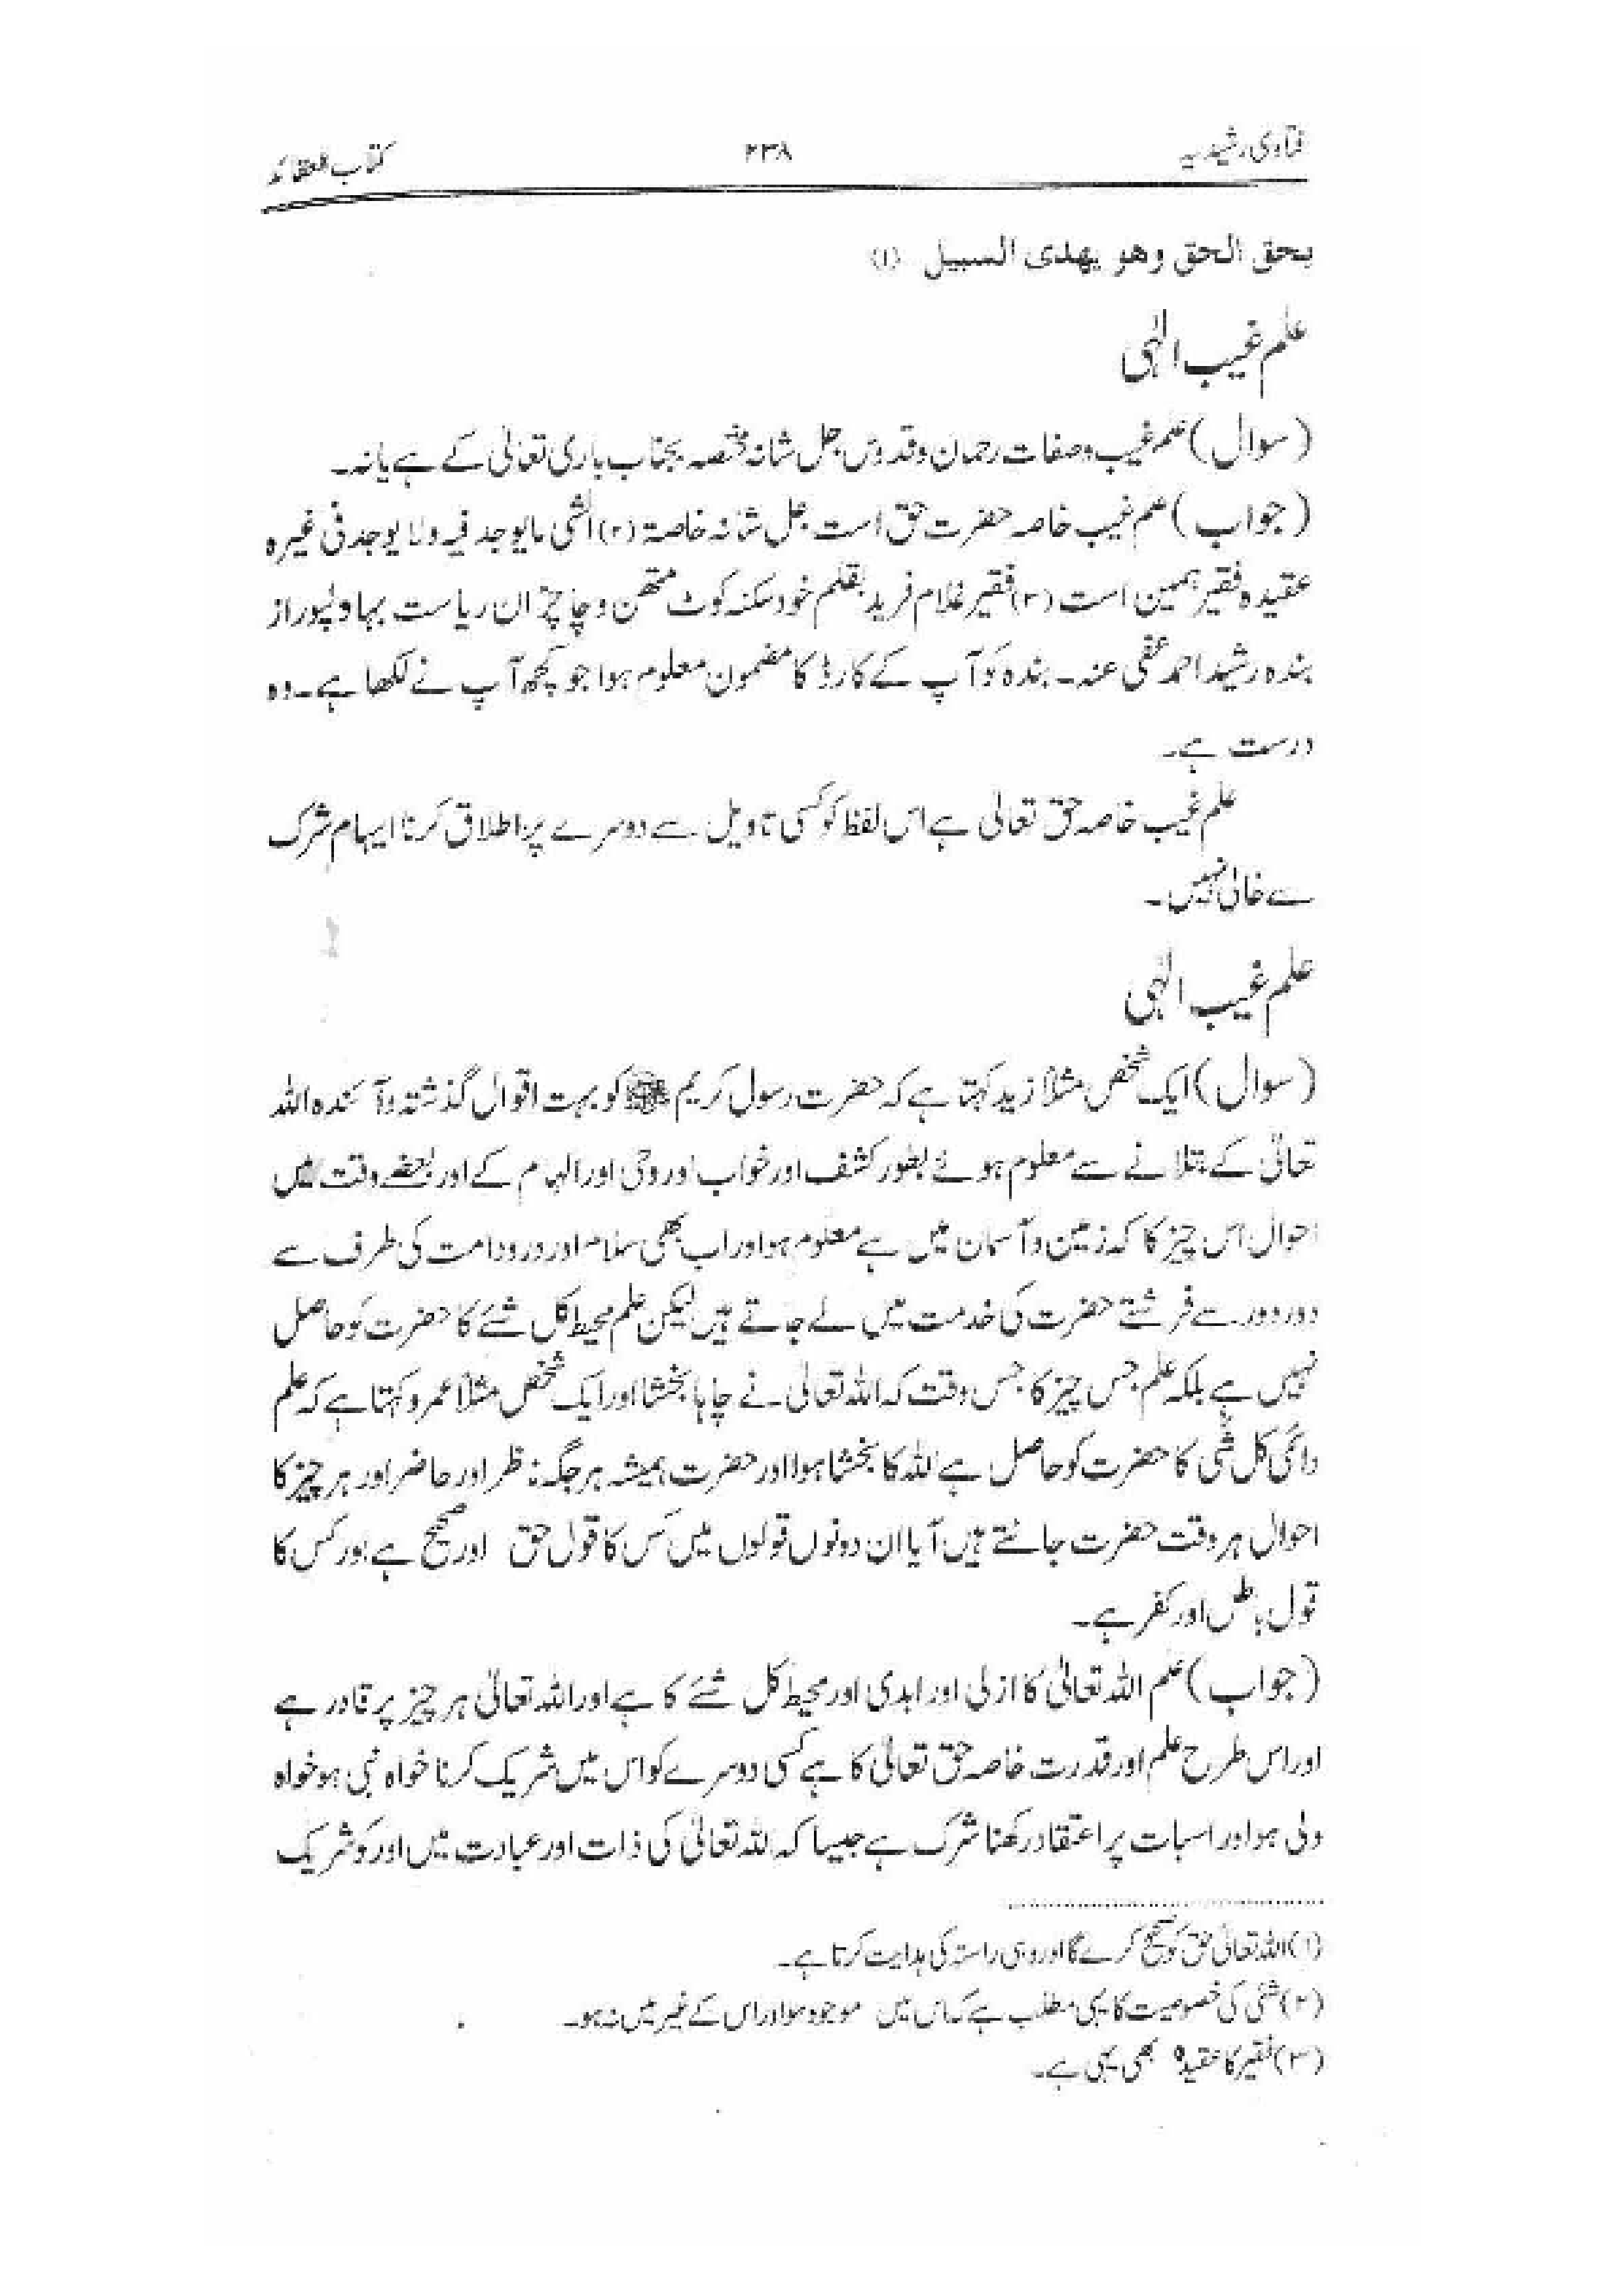 فتاوی رشیدیہ ۲۳۸ کتاب العقائد
بحق الحق وهو يهدى السبيل (۱)
علم غیب الٰہی
(سوال) علم غیب وصفات رحمان وقدوس جل شانہ مختصہ بجناب باری تعالیٰ کے ہے یا نہ۔
(جواب) علم غیب خاصہ حضرت حق است جل شانہ خاصۃ (۲) الشئی مایوجد فیہ ولا یوجد فی غیرہ
عقیدہ فقیر ہمین است (۳) فقیر غلام فرید بقلم خود سکنہ کوٹ مٹھن وچاچڑان ریاست بہاولپور از
بندہ رشید احمد عفی عنہ۔ بندہ کو آپ کے کارڈ کا مضمون معلوم ہوا جو کچھ آپ نے لکھا ہے۔ وہ
درست ہے۔
علم غیب خاصہ حق تعالیٰ ہے اس لفظ کو کسی تاویل سے دوسرے پر اطلاق کرنا ایہام شرک
سے خالی نہیں۔
علم غیب الٰہی
(سوال) ایک شخص مثلاً زید کہتا ہے کہ حضرت رسول کریم ﷺ کو بہت اقوال گذشتہ وآئندہ اللہ
تعالیٰ کے بتلانے سے معلوم ہوئے بطور کشف اور خواب اور وحی اور الہام کے اور بعضے وقت میں
احوال اس چیز کا کہ زمین وآسمان میں ہے معلوم ہوا اور اب بھی سلام اور درود امت کی طرف سے
دور دور سے فرشتے حضرت کی خدمت میں لے جاتے ہیں لیکن علم محیط کل شئے کا حضرت کو حاصل
نہیں ہے بلکہ علم جس چیز کا جس وقت کہ اللہ تعالیٰ نے چاہا بخشا اور ایک شخص مثلاً عمرو کہتا ہے کہ علم
دائمی کل شئی کا حضرت کو حاصل ہے اللہ کا بخشا ہوا اور حضرت ہمیشہ ہر جگہ ناظر اور حاضر اور ہر چیز کا
احوال ہر وقت حضرت جانتے ہیں آیا ان دونوں قولوں میں کس کا قول حق اور صحیح ہے اور کس کا
قول باطل اور کفر ہے۔
(جواب) علم اللہ تعالیٰ کا ازلی اور ابدی اور محیط کل شئے کا ہے اور اللہ تعالیٰ ہر چیز پر قادر ہے
اور اس طرح علم اور قدرت خاصہ حق تعالیٰ کا ہے کسی دوسرے کو اس میں شریک کرنا خواہ نبی ہو خواہ
ولی ہو اور اسبات پر اعتقاد رکھنا شرک ہے جیسا کہ اللہ تعالیٰ کی ذات اور عبادت میں اور کو شریک
(۱) اللہ تعالیٰ حق کو صحیح کرے گا اور وہی راستہ کی ہدایت کرتا ہے۔
(۲) شئی کی خصوصیت کا یہی مطلب ہے کہ اس میں موجود ہو اور اس کے غیر میں نہ ہو۔
(۳) فقیر کا عقیدہ بھی یہی ہے۔